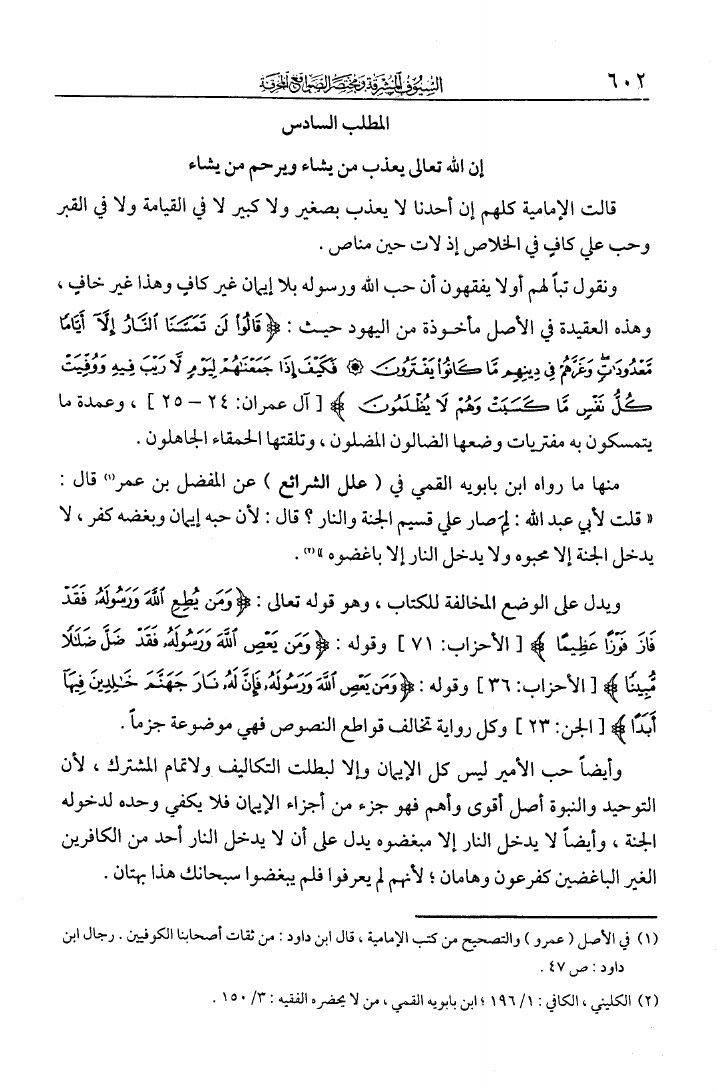 ٦٠٢
السيوف المشرقة ومختصر الصواقع المحرقة
المطلب السادس
إن الله تعالى يعذب من يشاء ويرحم من يشاء
قالت الإمامية كلهم إن أحدنا لا يعذب بصغير ولا كبير لا في القيامة ولا في القبر
وحب علي كافٍ في الخلاص إذ لات حين مناص .
ونقول تباً لهم أولا يفقهون أن حب الله ورسوله بلا إيمان غير كافٍ وهذا غير خافٍ ،
وهذه العقيدة في الأصل مأخوذة من اليهود حيث : ﴿ قَالُواْ لَن تَمَسَّنَا ٱلنَّارُ إِلَّآ أَيَّامًا
مَّعْدُودَٰتٍ وَغَرَّهُمْ فِي دِينِهِم مَّا كَانُواْ يَفْتَرُونَ ۞ فَكَيْفَ إِذَا جَمَعْنَٰهُمْ لِيَوْمٍ لَّا رَيْبَ فِيهِ وَوُفِّيَتْ
كُلُّ نَفْسٍ مَّا كَسَبَتْ وَهُمْ لَا يُظْلَمُونَ ﴾ [ آل عمران: ٢٤ – ٢٥ ] ، وعمدة ما
يتمسكون به مفتريات وضعها الضالون المضلون ، وتلقتها الحمقاء الجاهلون .
منها ما رواه ابن بابويه القمي في ( علل الشرائع ) عن المفضل بن عمر(١) قال :
« قلت لأبي عبد الله : لِمَ صار علي قسيم الجنة والنار ؟ قال : لأن حبه إيمان وبغضه كفر ، لا
يدخل الجنة إلا محبوه ولا يدخل النار إلا باغضوه »(٢) .
ويدل على الوضع المخالفة للكتاب ، وهو قوله تعالى : ﴿ وَمَن يُطِعِ ٱللَّهَ وَرَسُولَهُۥ فَقَدْ
فَازَ فَوْزًا عَظِيمًا ﴾ [ الأحزاب: ٧١ ] وقوله : ﴿ وَمَن يَعْصِ ٱللَّهَ وَرَسُولَهُۥ فَقَدْ ضَلَّ ضَلَٰلًا
مُّبِينًا ﴾ [ الأحزاب: ٣٦ ] وقوله : ﴿ وَمَن يَعْصِ ٱللَّهَ وَرَسُولَهُۥ فَإِنَّ لَهُۥ نَارَ جَهَنَّمَ خَٰلِدِينَ فِيهَآ
أَبَدًا ﴾ [ الجن: ٢٣ ] وكل رواية تخالف قواطع النصوص فهي موضوعة جزماً .
وأيضاً حب الأمير ليس كل الإيمان وإلا لبطلت التكاليف ولاتمام المشترك ، لأن
التوحيد والنبوة أصل أقوى وأهم فهو جزء من أجزاء الإيمان فلا يكفي وحده لدخوله
الجنة ، وأيضاً لا يدخل النار إلا مبغضوه يدل على أن لا يدخل النار أحد من الكافرين
الغير الباغضين كفرعون وهامان ؛ لأنهم لم يعرفوا فلم يبغضوا سبحانك هذا بهتان .
(١) في الأصل ( عمرو ) والتصحيح من كتب الإمامية ، قال ابن داود : من ثقات أصحابنا الكوفيين . رجال ابن
داود : ص ٤٧ .
(٢) الكليني ، الكافي : ١/ ١٩٦ ؛ ابن بابويه القمي ، من لا يحضره الفقيه : ٣/ ١٥٠ .